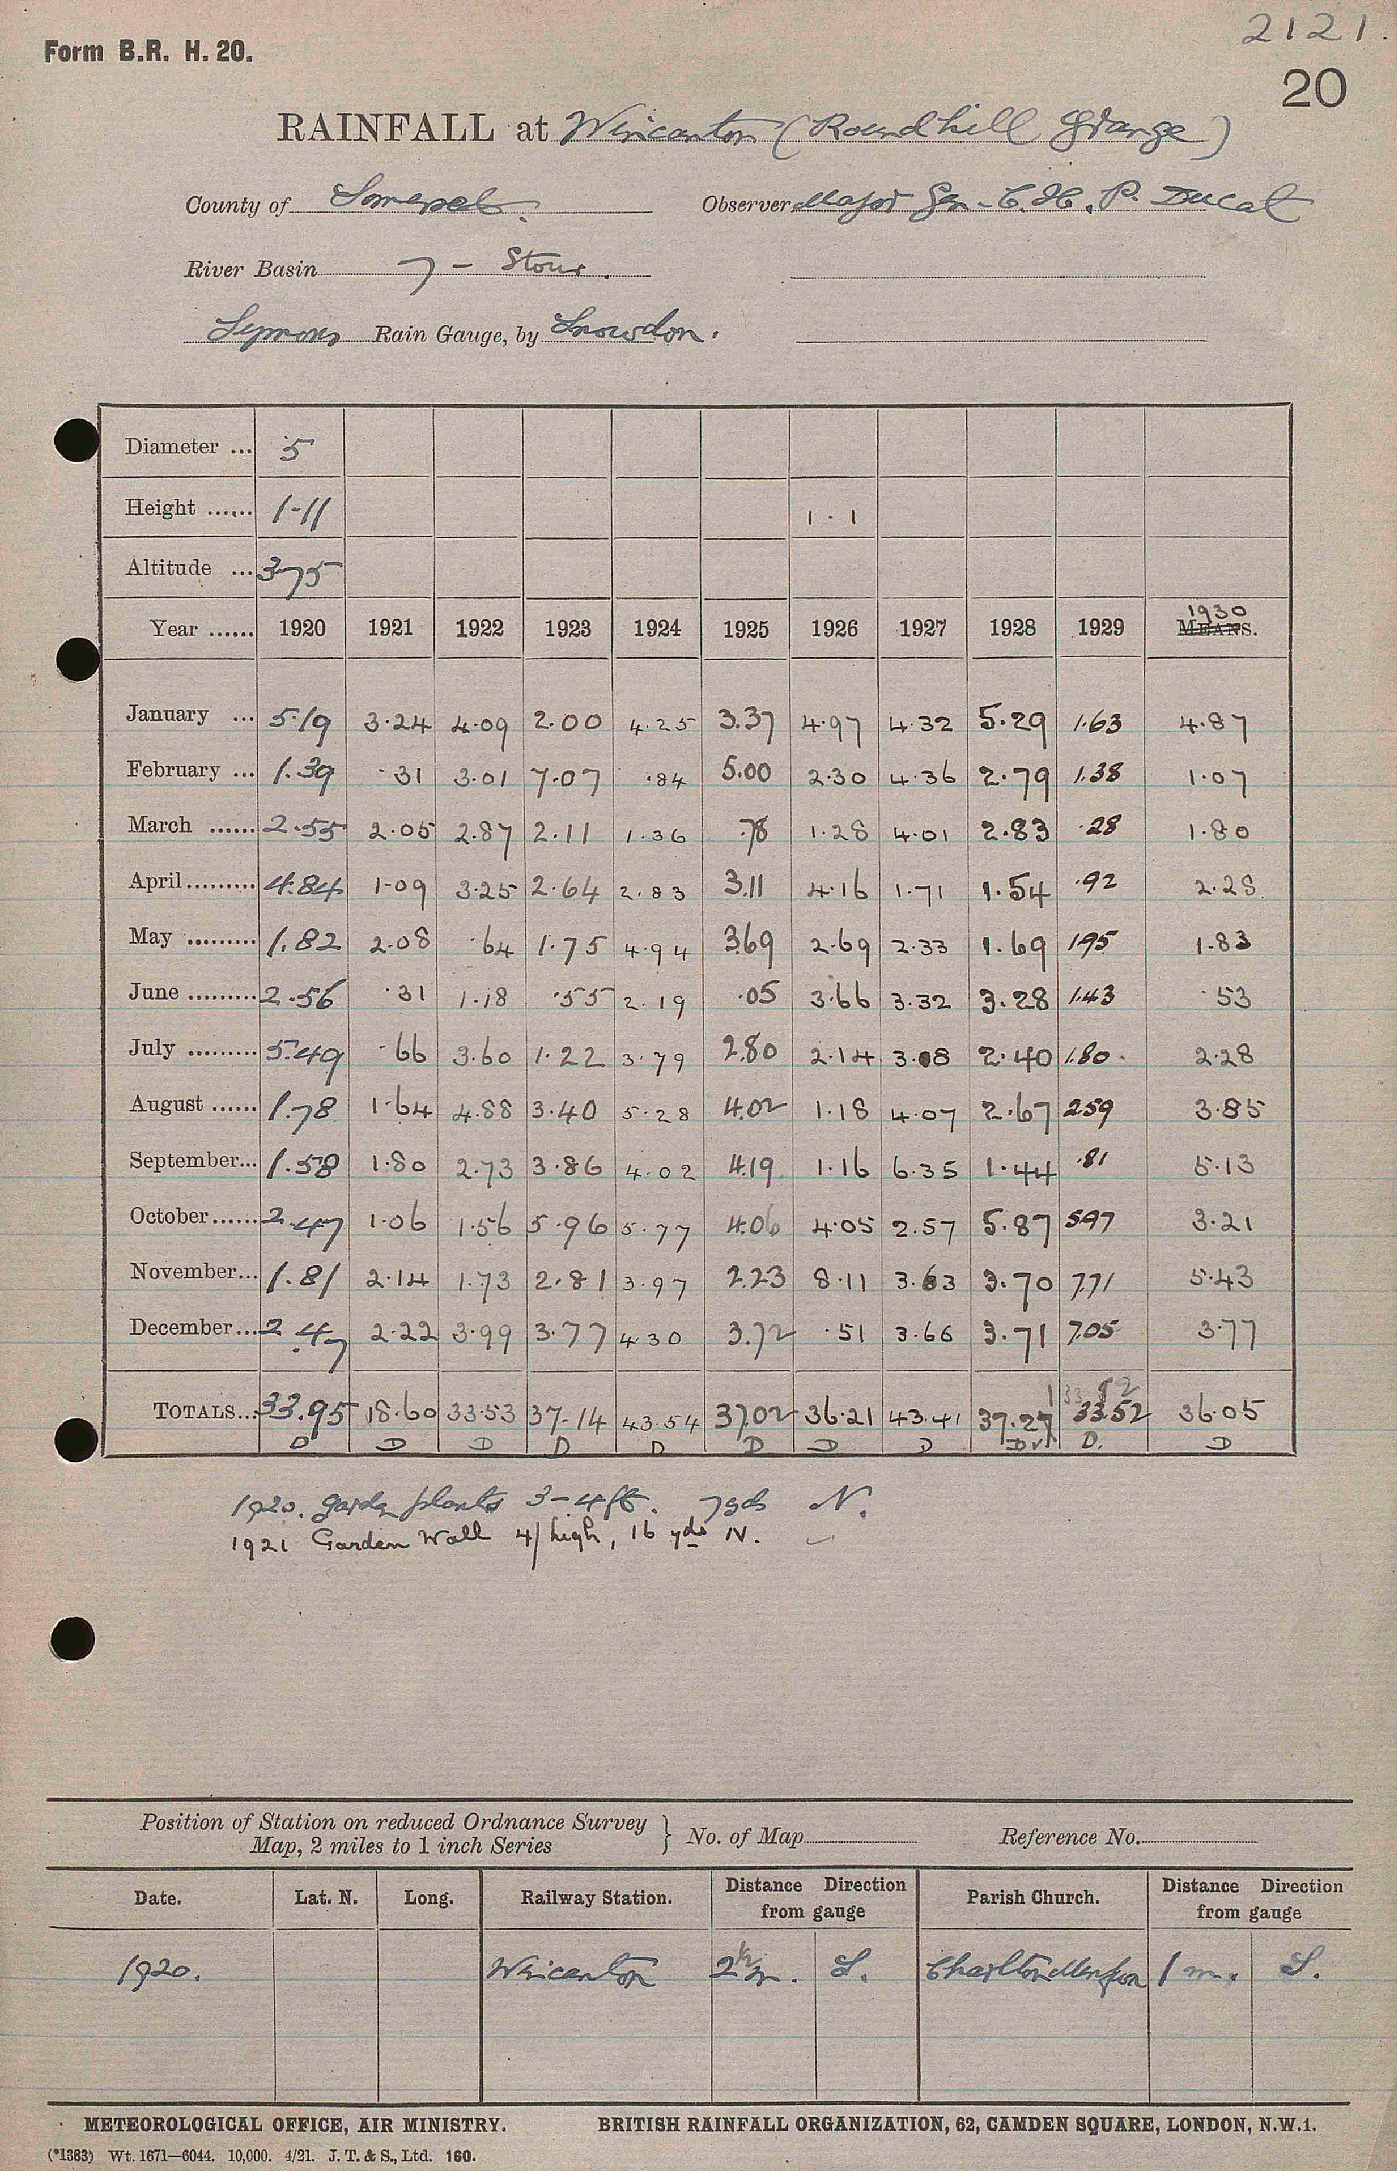 2121.
Form B.R. H. 20.
20
RAINFALL at Wincanton (Roundhill Grange)
County of Somerset. Observer Major Gen. C. H. P. Ducat
River Basin 7 - Stour.
Symons Rain Gauge, by Snowdon.
Diameter ... 5
Height ...... 1-11 1-1
Altitude ... 375
Year ...... 1920 1921 1922 1923 1924 1925 1926 1927 1928 1929 1930 MEANS.
January ... 5.19 3.24 4.09 2.00 4.25 3.37 4.97 4.32 5.29 1.63 4.87
February ... 1.39 .31 3.01 7.07 .84 5.00 2.30 4.36 2.79 1.38 1.07
March ...... 2.55 2.05 2.87 2.11 1.36 .78 1.28 4.01 2.83 .28 1.80
April ......... 4.84 1.09 3.25 2.64 2.83 3.11 4.16 1.71 1.54 .92 2.28
May ......... 1.82 2.08 .64 1.75 4.94 3.69 2.69 2.33 1.69 1.95 1.83
June ......... 2.56 .31 1.18 .55 2.19 .05 3.66 3.32 3.28 1.43 .53
July ......... 5.49 .66 3.60 1.22 3.79 2.80 2.14 3.08 2.40 1.80 2.28
August ...... 1.78 1.64 4.88 3.40 5.28 4.02 1.18 4.07 2.67 2.59 3.85
September... 1.58 1.80 2.73 3.86 4.02 4.19 1.16 6.35 1.44 .81 5.13
October ...... 2.47 1.06 1.56 5.96 5.77 4.06 4.05 2.57 5.87 5.97 3.21
November... 1.81 2.14 1.73 2.81 3.97 2.23 8.11 3.63 3.70 7.71 5.43
December... 2.47 2.22 3.99 3.77 4.30 3.72 .51 3.66 3.71 7.05 3.77
33.52
TOTALS... 33.95 18.60 33.53 37.14 43.54 37.02 36.21 43.41 37.21 33.52 36.05
D D D D D D D D D D. D
1920. garden plants 3-4ft. 7yds N.
1921 Garden Wall 4/ high, 16 yds N.
Position of Station on reduced Ordnance Survey
Map, 2 miles to 1 inch Series } No. of Map Reference No.
Date. Lat. N. Long. Railway Station. Distance Direction from gauge Parish Church. Distance Direction from gauge
1920. Wincanton 2½ m. S. Charlton Musgrove 1 m. S.
METEOROLOGICAL OFFICE, AIR MINISTRY. BRITISH RAINFALL ORGANIZATION, 62, CAMDEN SQUARE, LONDON, N.W.1.
(*1383) Wt. 1671—6044. 10,000. 4/21. J. T. & S., Ltd. 160.